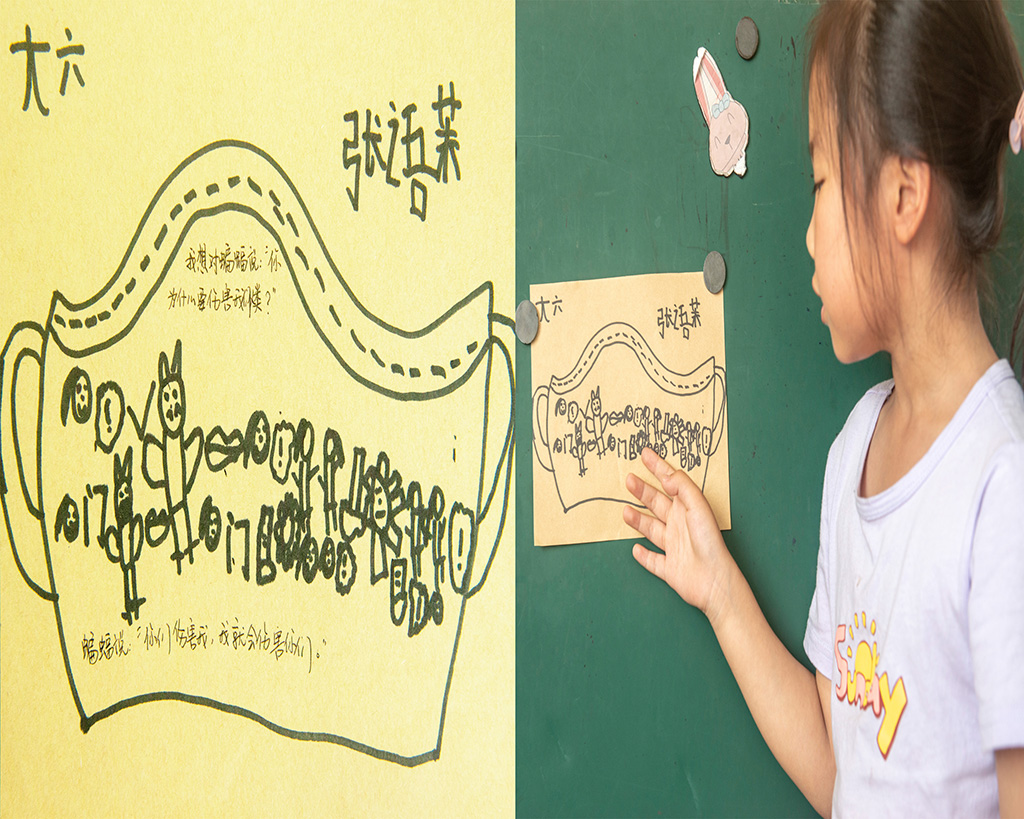 大六
张语茉
我想对蝙蝠说:“你
为什么要伤害我们类?”
蝙蝠说:“你们伤害我,我就会伤害你们。”
大六
张语茉
Sunny